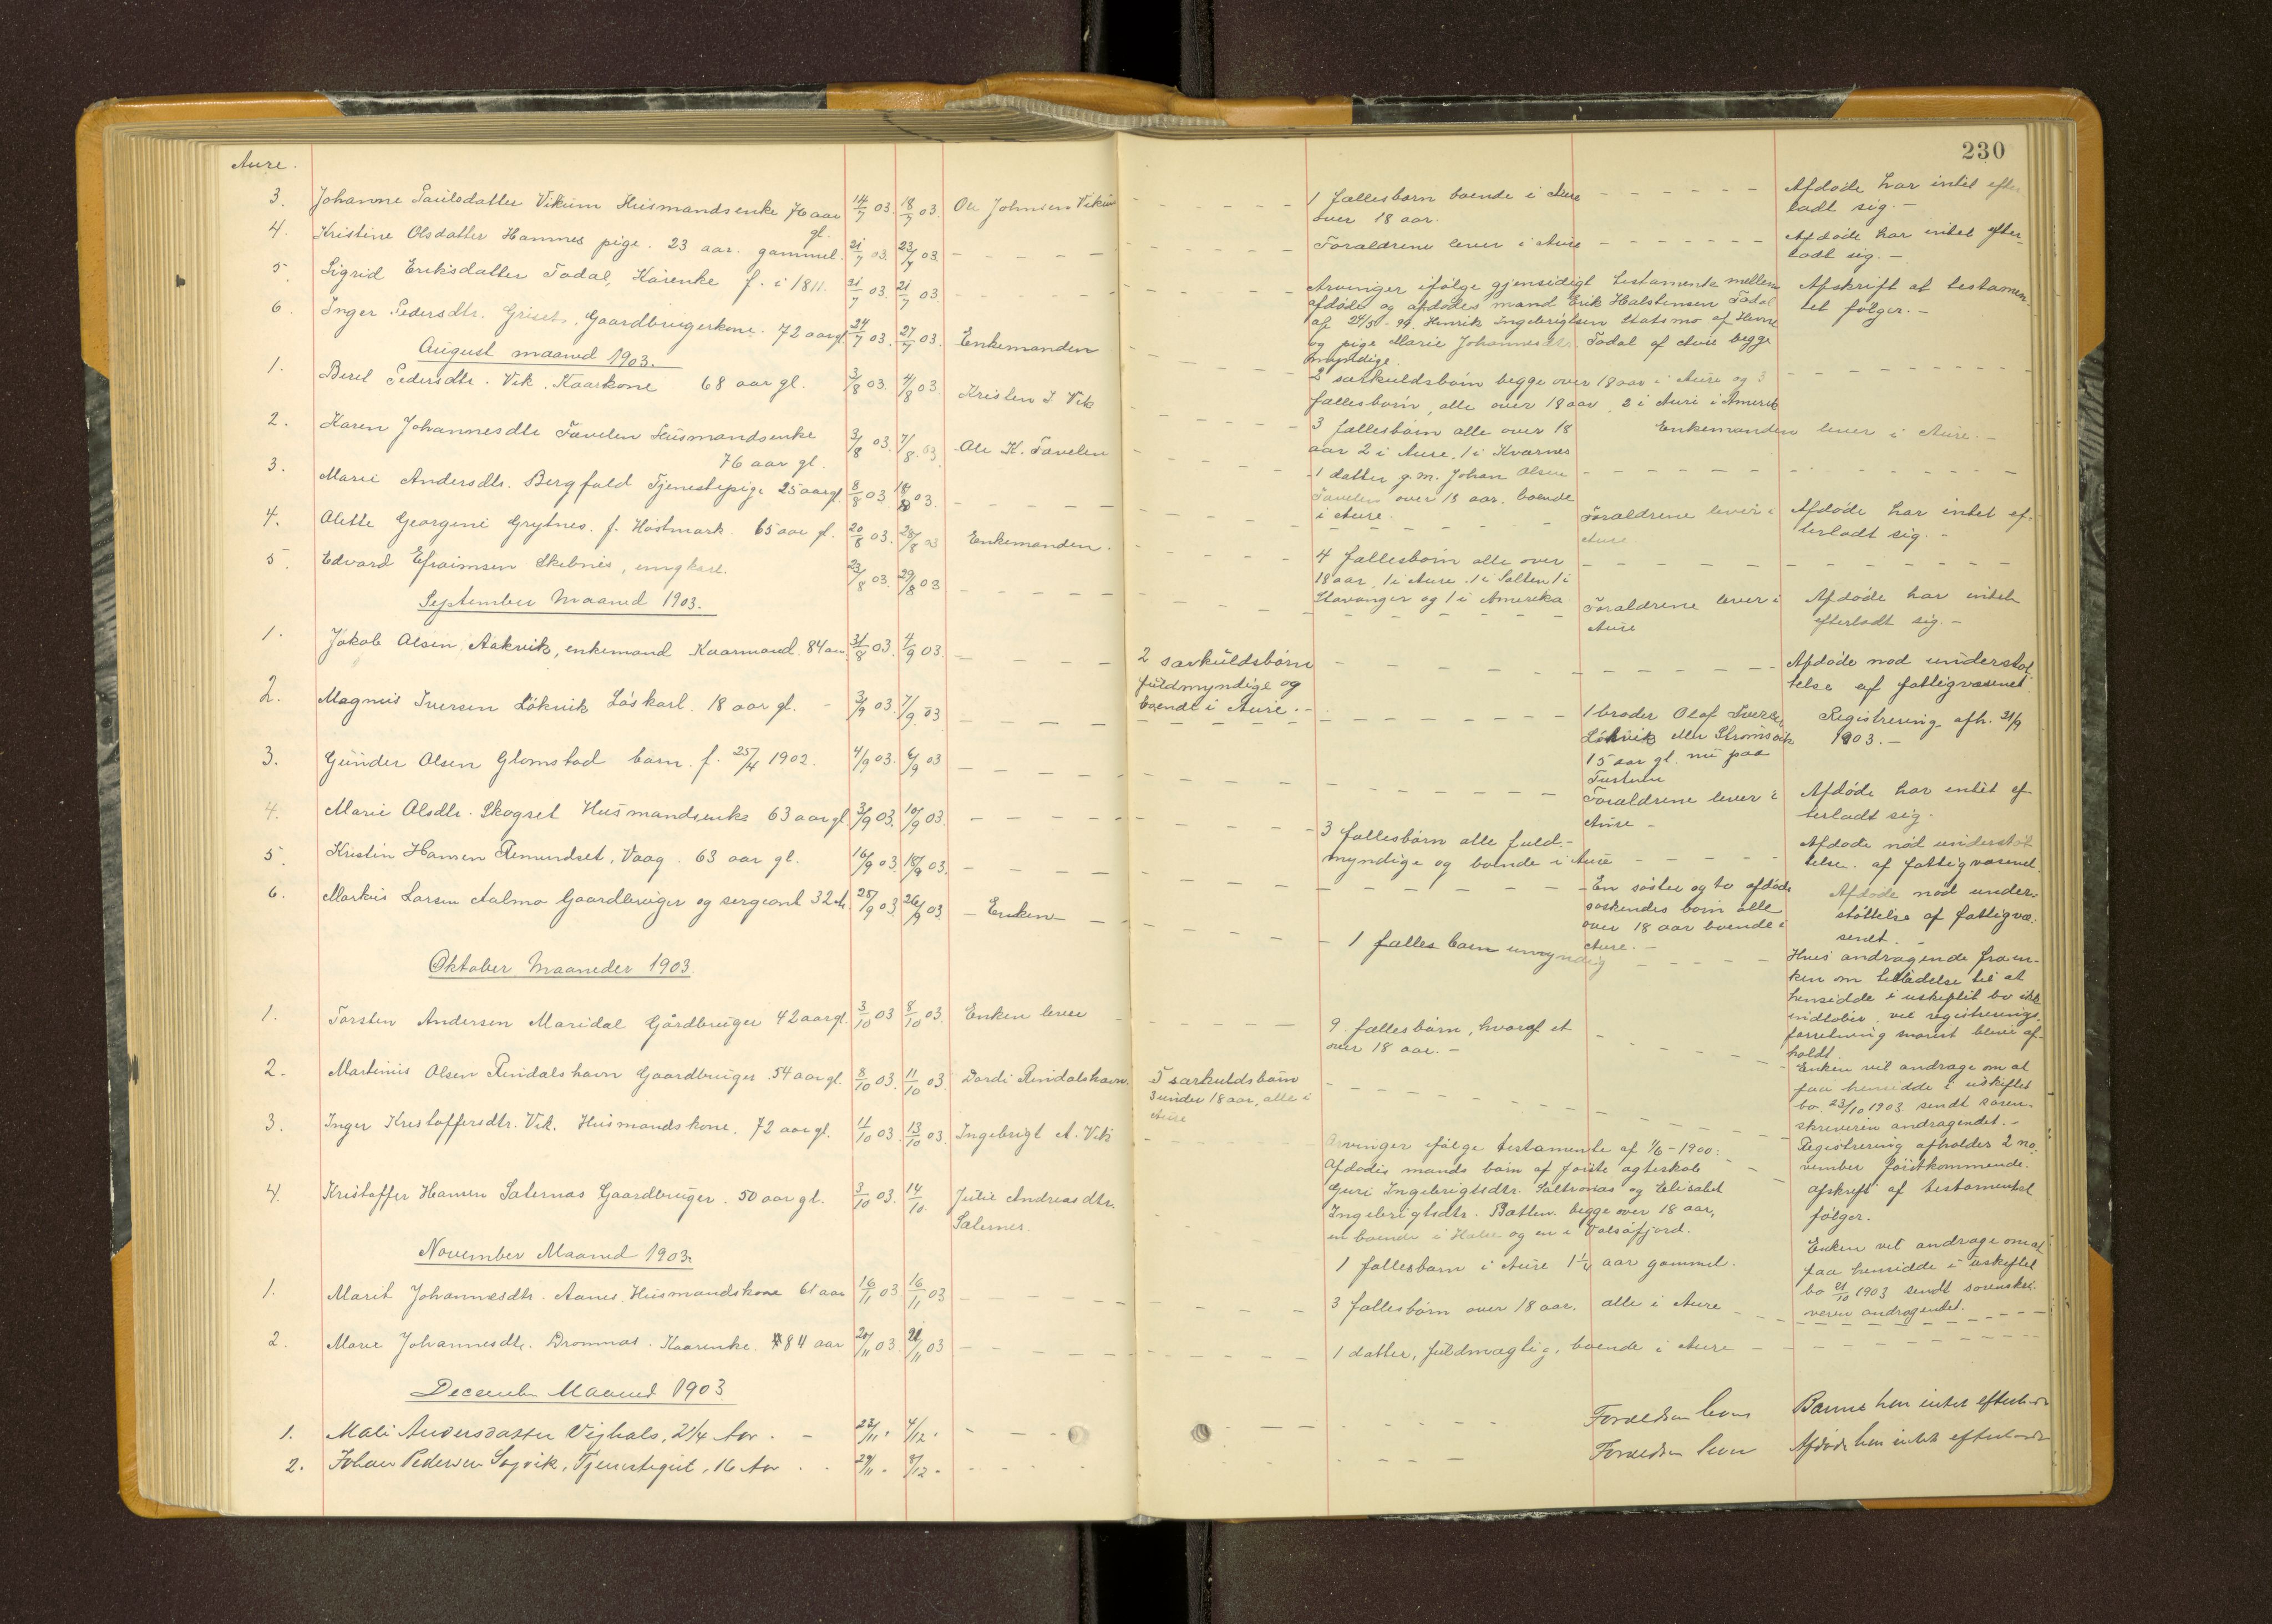 230
Aure.
3. Johanne Paulsdatter Vikum Husmandsenke 76 aar gl. 14/7 03. 18/7 03. Ole Johnsen Vikum
1 fællesbarn boende i Aure
over 18 aar.
Afdøde har intet efter
ladt sig. –
4. Kristine Olsdatter Hamnes pige. 23 aar. gammel. 21/7 03. 23/7 03.
Forældrene lever i Aure
Afdøde har intet efter-
ladt sig. –
5. Sigrid Eriksdatter Todal, Kårenke f. i 1811. 21/7 03. 21/7 03
Arvinger ifølge gjensidigt testamente mellem
afdøde og afdødes mand Erik Halstensen Todal
af 24/5 - 99. Henrik Ingebrigtsen Statsmo af Hevne
og pige Marie Johannesdtr. Todal af Aure begge
myndige.
Afskrift af testamen-
tet følger. –
6. Inger Pedersdtr. Griset. Gaardbrugerkone. 72 aar gl. 24/7 03. 27/7 03. Enkemanden
2 særkuldsbørn begge over 18 aar i Aure og 3
fællesbørn, alle over 18 aar, 2 i Aure i Amerik
August maaned 1903.
1. Beret Pedersdtr. Vik. Kaarkone 68 aar gl. 3/8 03. 4/8 03. Kristen J. Vik
3 fællesbørn alle over 18
aar 2 i Aure, 1 i Kvernes
Enkemanden lever i Aure. –
2. Karen Johannesdtr Tævelen Husmandsenke
76 aar gl. 3/8 03. 7/8 03 Ole K. Tævelen
1 datter g. m. Johan Olsen
Tævelen over 18 aar. boende
i Aure.
3. Marie Andersdtr. Bergfald Tjenestepige 25 aar gl. 8/8 03 18/8 03.
Forældrene lever i
Aure
Afdøde har intet ef-
terladt sig. –
4. Alette Georgine Grytnes. f. Høstmark. 65 aar gl. 20/8 03. 28/8 03 Enkemanden.
4 fællesbørn alle over
18 aar, 1 i Aure. 1 i Salten 1 i
Stavanger og 1 i Amerika
5. Edvard Efraimsen Skebnes, ungkarl. 23/8 03. 29/8 03
Forældrene lever i
Aure
Afdøde har intet
efterladt sig. –
September Maaned 1903.
1. Jakob Olsen Aakvik, enkemand Kaarmand. 84 aar. 31/8 03. 4/9 03.
2 særkuldsbørn
fuldmyndige og
boende i Aure. –
Afdøde nød understøt
telse af fattigvæsenet.
2. Magnus Iversen Løkvik Løskarl. 18 aar gl. – 3/9 03. 7/9 03
1 broder Olaf Iversen
Løkvik eller Strømsvik
15 aar gl. nu paa
Tustern
Registrering afh. 21/9
1903. –
3. Gunder Olsen Glomstad barn. f. 25/4 1902. 4/9 03. 6/9 03
Forældrene lever i
Aure –
Afdøde har intet ef
terladt sig.
4. Marie Olsdtr. Skogset Husmandsenke 63 aar gl. 3/9 03. 10/9 03.
3 fællesbørn alle fuld-
myndige og boende i Aure
Afdøde nød understøt
telse. af fattigvæsenet.
5. Kristen Hansen Remundset, Vaag. 63 aar gl. 16/9 03. 18/9 03.
En søster og to afdøde
søskendes børn alle
over 18 aar boende i
Aure. –
Afdøde nød under-
støttelse af fattigvæ-
senet. –
6. Markus Larsen Aalmo Gaardbruger og sergeant 32 år. 25/9 03. 26/9 03. – Enken –
1 fælles barn umyndig
Hvis andragende fra en-
ken om tilladelse til at
hensidde i uskiftet bo ikke
indløber, vil registrerings-
forretning snarest blive af-
holdt.
Oktober Maaneder 1903.
1. Torsten Andersen Maridal Gårdbruger 42 aar gl. 3/10 03 8/10 03. Enken lever
9 fællesbørn, hvoraf et
over 18 aar. –
Enken vil andrage om at
faa hensidde i uskiftet
bo. 23/10 1903. sendt soren-
skriveren andragendet. –
2. Martinus Olsen Rindalshavn Gaardbruger 54 aar gl. 8/10 03. 11/10 03. Dordi Rindalshavn.
5 særkuldsbørn
3 under 18 aar, alle i
Aure
Registrering afholdes 2 no-
vember førstkommende.
3. Inger Kristoffersdtr. Vik. Husmandskone. 72 aar gl. 11/10 03. 13/10 03. Ingebrigt A. Vik
Arvinger ifølge testamente af 1/6 – 1900:
Afdødes mands børn af første ægteskab
Guri Ingebrigtsdtr. Saltrønes og Elisabet
Ingebrigtsdtr. Batten. begge over 18 aar,
en boende i Halse og en i Valsøfjord.
afskrift af testamentet
følger.
4. Kristoffer Hansen Salernæs Gaardbruger. 50 aar gl. 3/10 03. 14/10. Julie Andreasdtr.
Salernes.
1 fællesbarn i Aure 1 1/4 aar gammel.
Enken vil andrage om at
faa hensidde i uskiftet
bo 21/10 1903 sendt sorenskri-
veren andragendet.
November Maaned 1903.
1. Marit Johannesdtr. Aanes. Husmandskone 61 aar 16/11 03. 16/11 03
3 fællesbørn over 18 aar. alle i Aure
2. Marie Johannesdtr. Dromnæs. Kaarenke. 84 aar 20/11 03. 21/11 03
1 datter, fuldmægtig, boende i Aure
December Maaned 1903
1. Mali Andersdatter Vighals, 2 1/4 Aar. – 23/11. 4/12.
Forældren leve
Barnet har intet efterladt
2. Johan Pedersen Søyvik, Tjenestegut, 16 Aar. 29/11. 8/12.
Forældren leve
Afdøde har intet efterladt